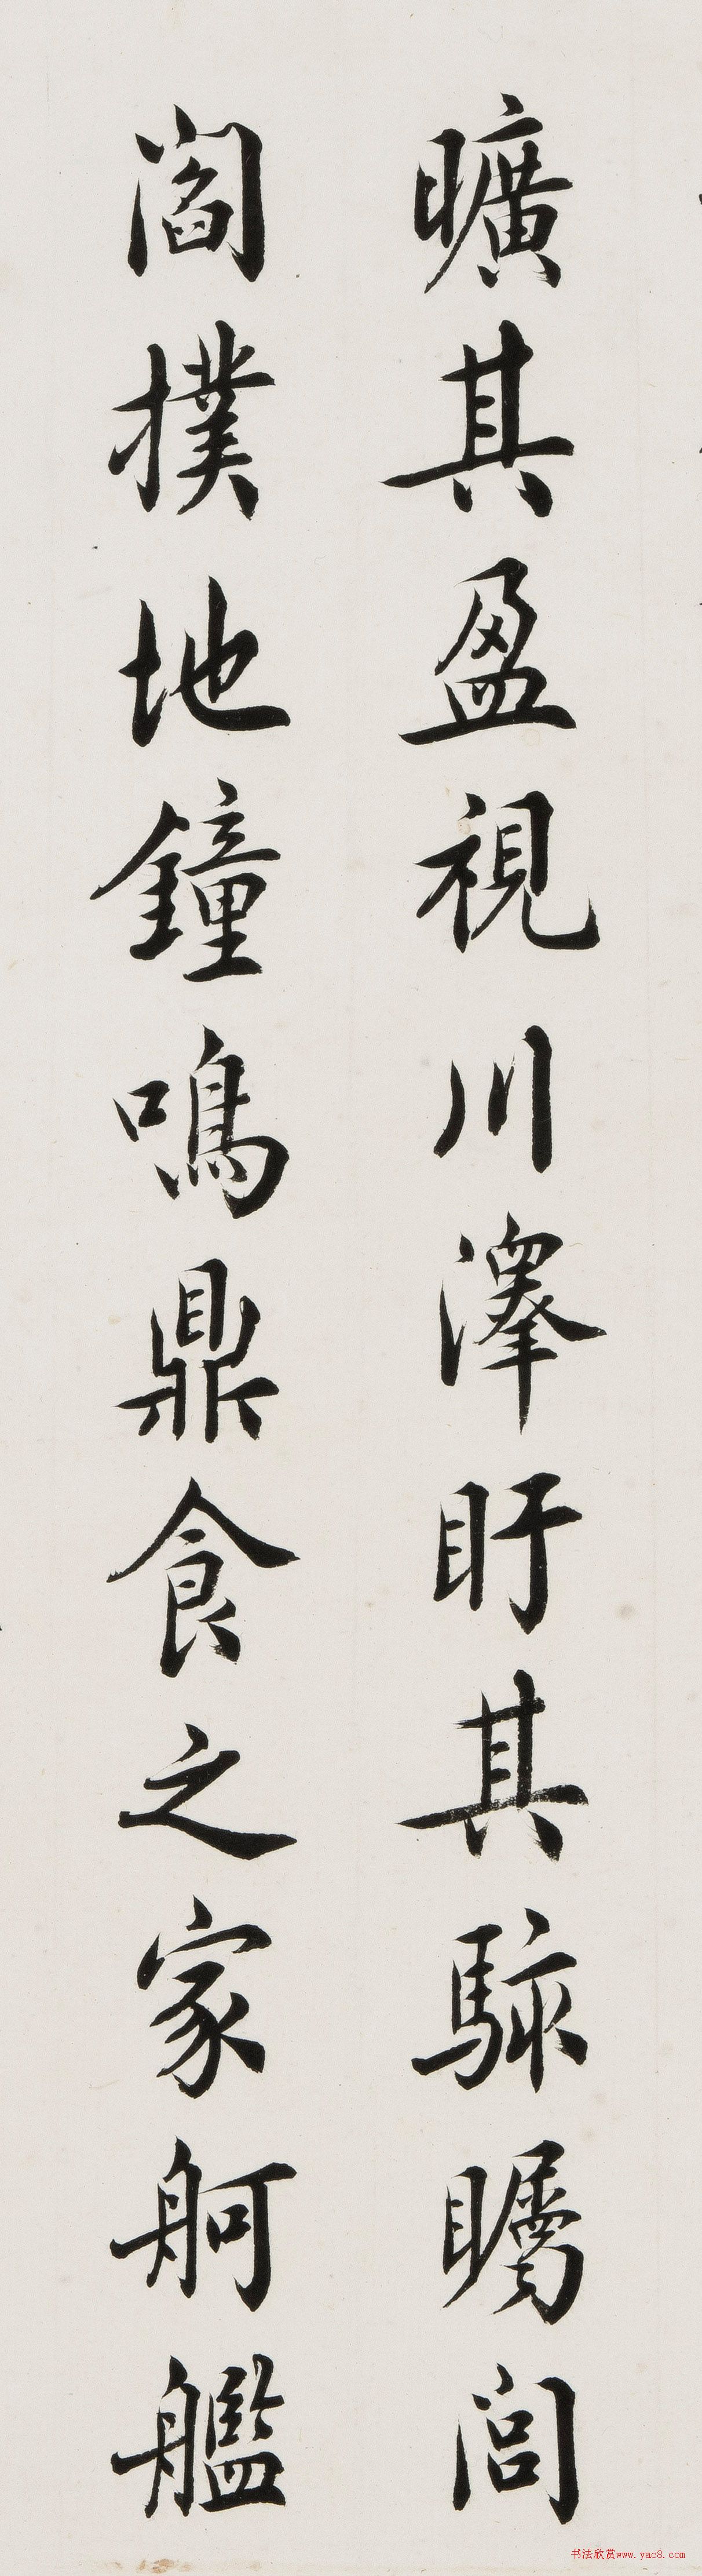 曠其盈視川澤盱其駭矚閭
閻撲地鐘鳴鼎食之家舸艦
书法欣赏www.yac8.com